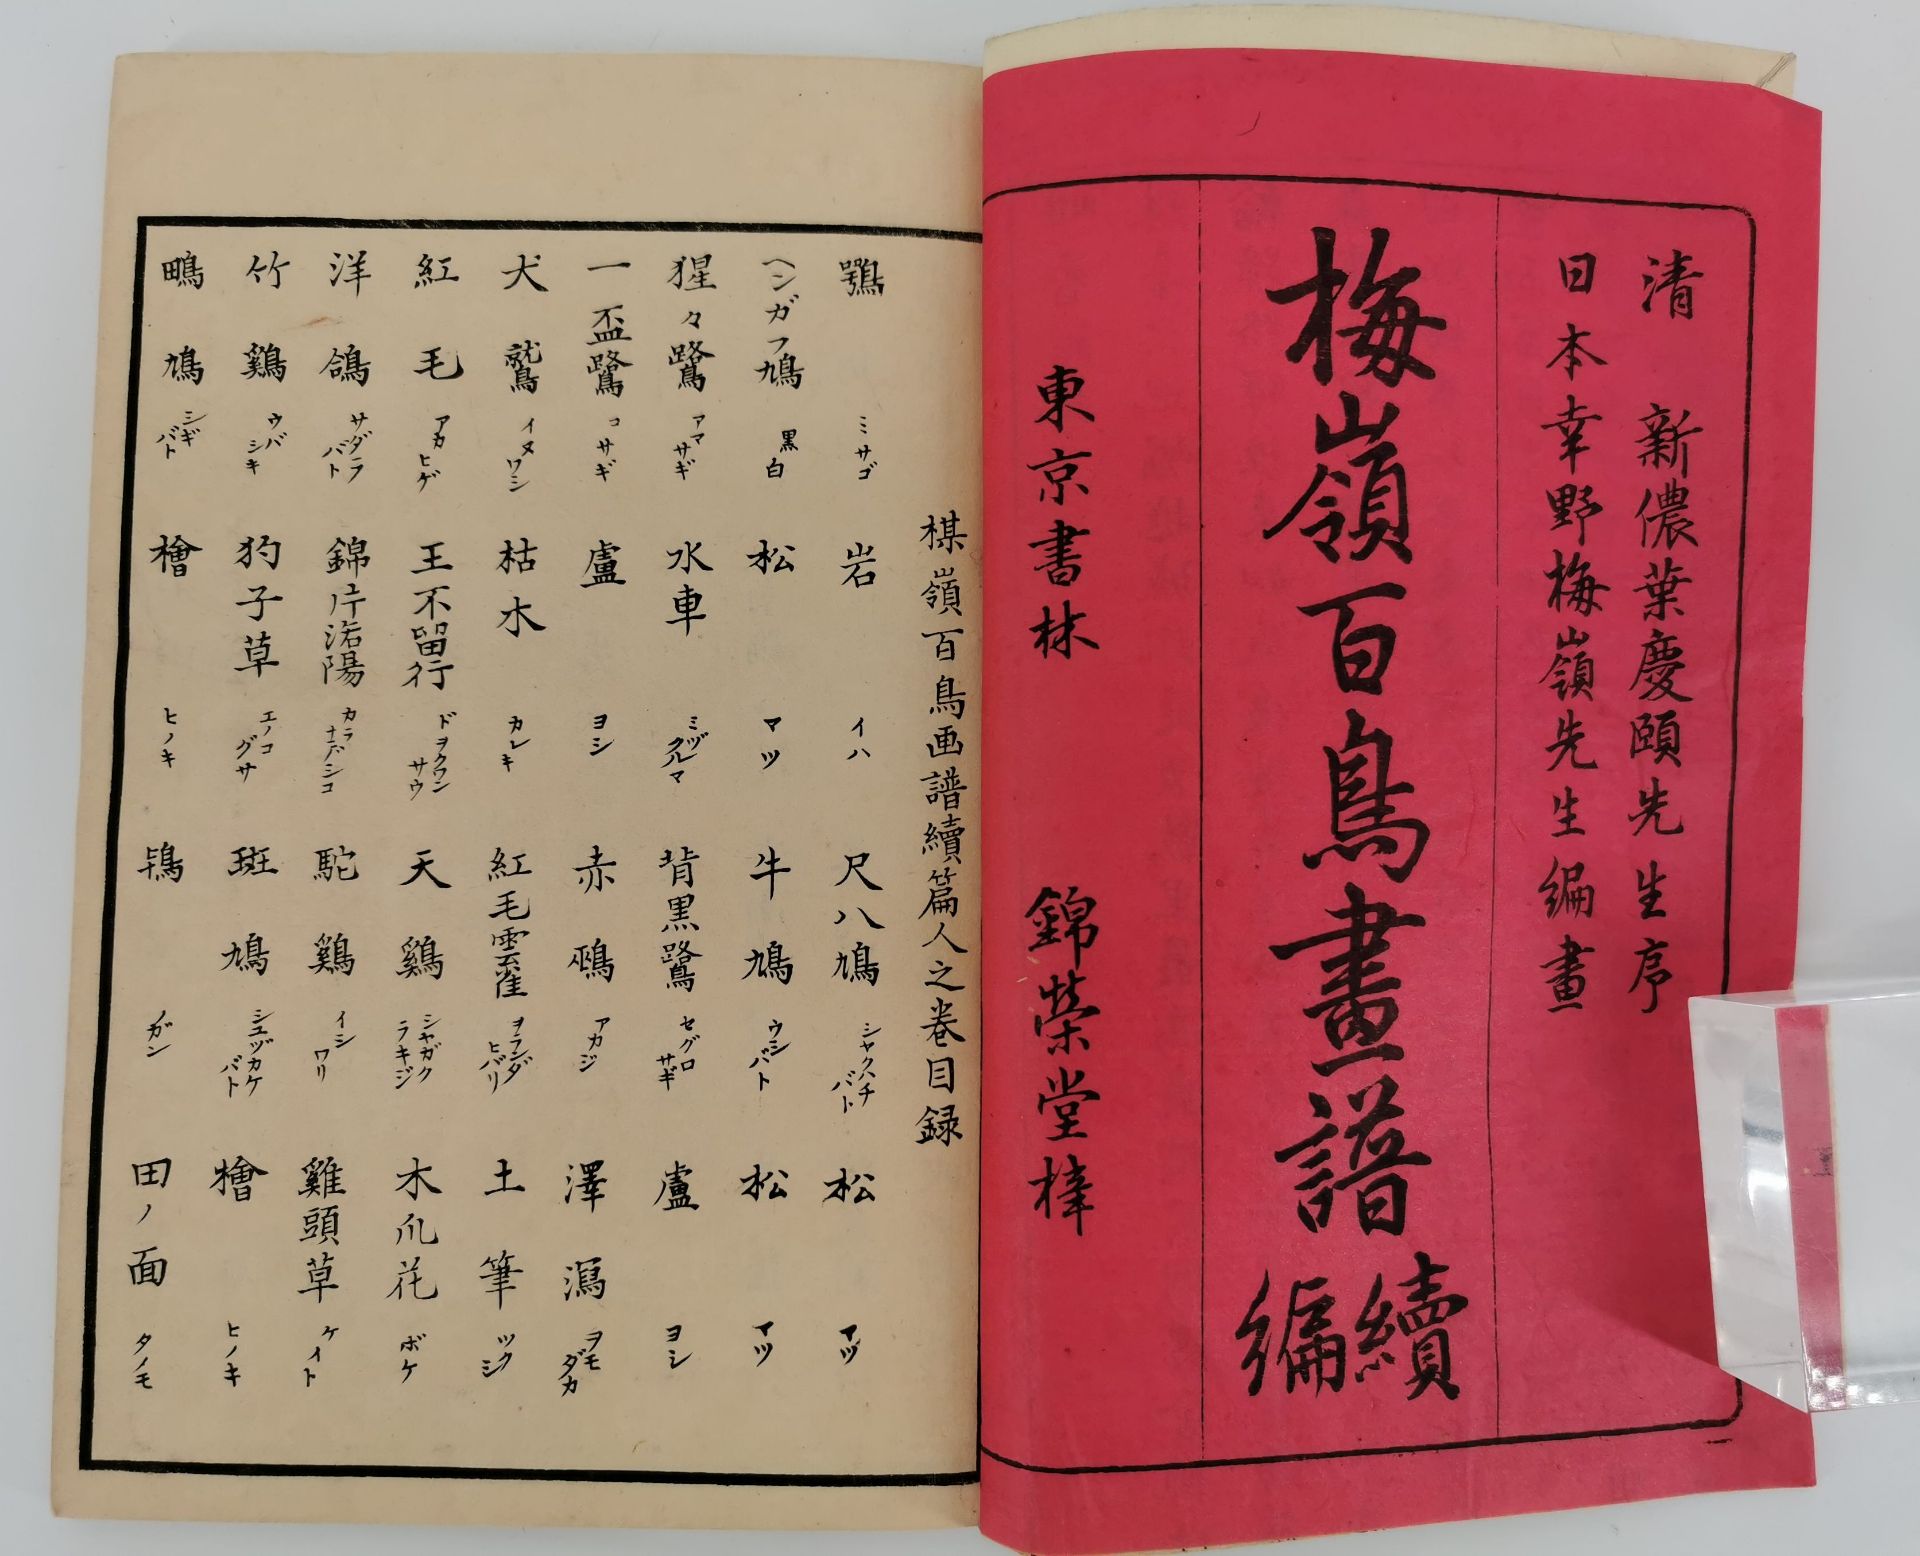 清 新儂葉慶頤先生序
日本幸野梅嶺先生編畫
梅嶺百鳥畫譜續編
東京書林 錦榮堂梓
楳嶺百鳥画譜續篇人之巻目録
鶚 ミサゴ 岩 イハ 尺八鳩 シャクハチバト 松 マツ
ヘンガフ鳩 黒白 松 マツ 牛鳩 ウシバト 松 マツ
猩々鷺 アマサギ 水車 ミヅクルマ 背黒鷺 セグロサギ 蘆 ヨシ
一盃鷺 コサギ 蘆 ヨシ 赤鵐 アカジ 澤瀉 ヲモダカ
犬鷲 イヌワシ 枯木 カレキ 紅毛雲雀 ヲランダヒバリ 土筆 ツクシ
紅毛 アカヒゲ 王不留行 ドヲクワンサウ 天鷄 シャガクラキジ 木爪花 ボケ
洋鴿 サダラバト 錦片洛陽 カラナデシコ 駝鷄 イシワリ 雞頭草 ケイト
竹鷄 ウバシキ 狗子草 エノコグサ 斑鳩 シユヅカケバト 檜 ヒノキ
鴫鳩 シギバト 檜 ヒノキ 鴇 ガン 田ノ面 タノモ